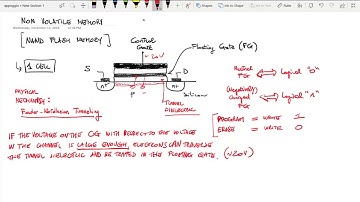 NON VOLATILE MEMORY
[NAND FLASH MEMORY]
1 CELL
Control
Gate
~20V
Floating Gate (FG)
S
D
n+
n+
P
Silicon
TUNNEL
DIELECTRIC
PHYSICAL
MECHANISM:
Fowler-Nordheim Tunneling
Neutral
FG
Logical "0"
(Negatively)
Charged
FG
Logical "1"
PROGRAM = WRITE 1
ERASE = WRITE 0
IF THE VOLTAGE ON THE CG WITH RESPECT TO THE VOLTAGE
IN THE CHANNEL IS LARGE ENOUGH, ELECTRONS CAN TRAVERSE
THE TUNNEL DIELECTRIC AND BE TRAPPED IN THE FLOATING GATE. (~20V)